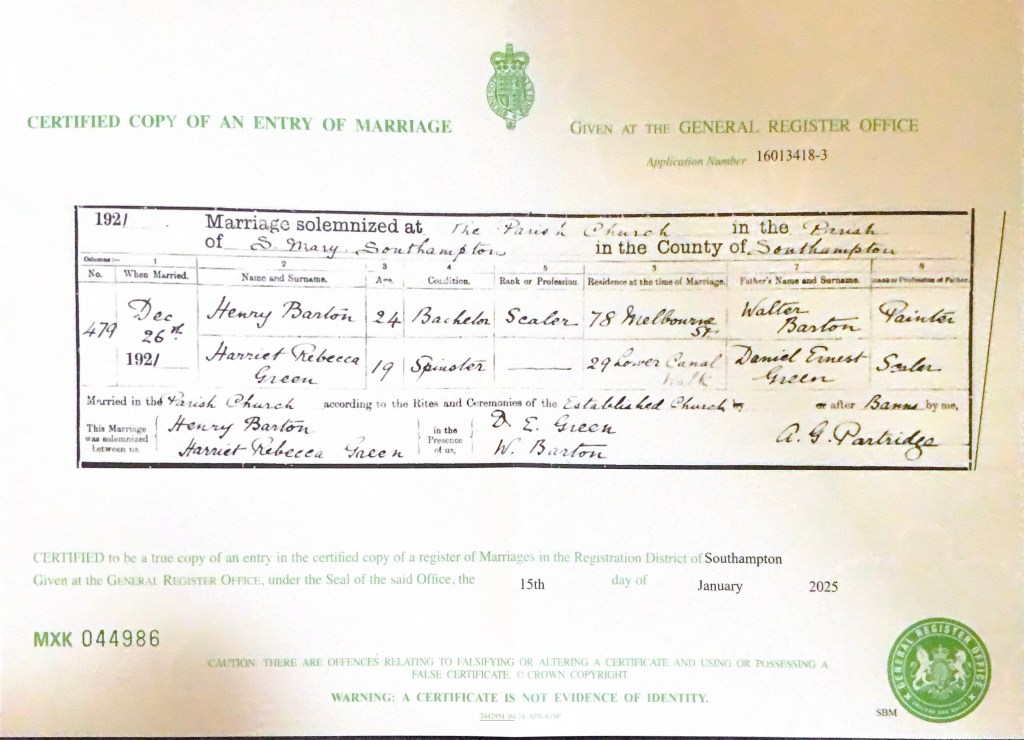 CERTIFIED COPY OF AN ENTRY OF MARRIAGE
GIVEN AT THE GENERAL REGISTER OFFICE
Application Number 16013418-3
1921 Marriage solemnized at The Parish Church in the Parish
of S. Mary Southampton in the County of Southampton
Columns:— 1 2 3 4 5 6 7 8
No. When Married. Name and Surname. Age. Condition. Rank or Profession. Residence at the time of Marriage. Father's Name and Surname. Rank or Profession of Father.
479 Dec 26th 1921
Henry Barton 24 Bachelor Scaler 78 Melbourne St. Walter Barton Painter
Harriet Rebecca Green 19 Spinster 29 Lower Canal Walk Daniel Ernest Green Scaler
Married in the Parish Church according to the Rites and Ceremonies of the Established Church by or after Banns by me,
This Marriage was solemnized between us,
Henry Barton
Harriet Rebecca Green
in the Presence of us,
D. E. Green
W. Barton
A. G. Partridge
CERTIFIED to be a true copy of an entry in the certified copy of a register of Marriages in the Registration District of Southampton
Given at the GENERAL REGISTER OFFICE, under the Seal of the said Office, the 15th day of January 2025
MXK 044986
CAUTION: THERE ARE OFFENCES RELATING TO FALSIFYING OR ALTERING A CERTIFICATE AND USING OR POSSESSING A
FALSE CERTIFICATE. © CROWN COPYRIGHT
WARNING: A CERTIFICATE IS NOT EVIDENCE OF IDENTITY.
GENERAL REGISTER OFFICE
SBM